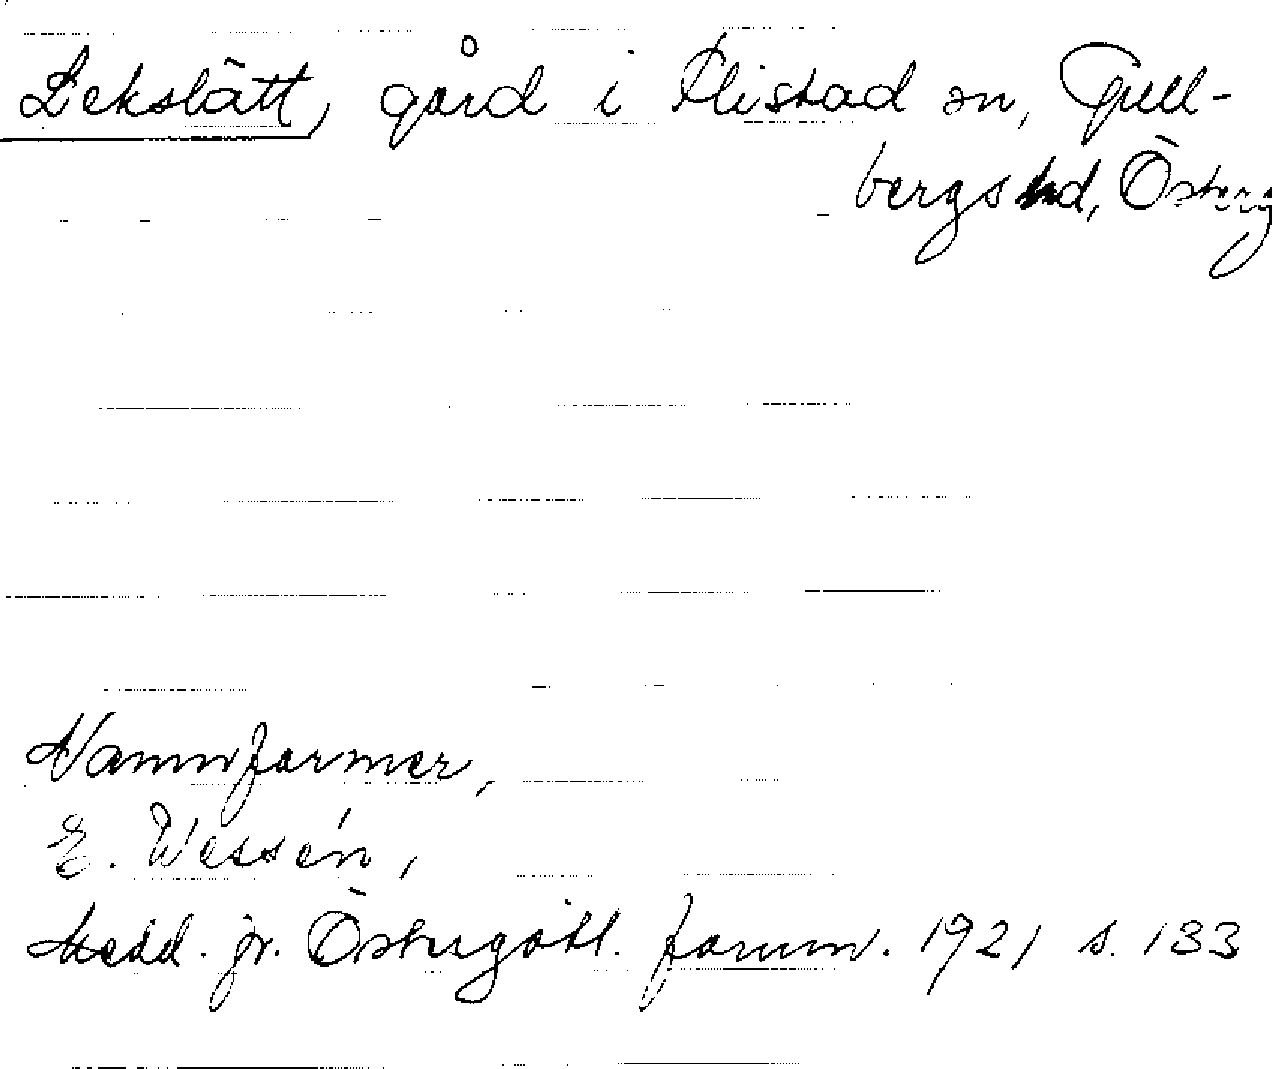 Lekslätt, gård i Flistad sn, Gull-
bergs hd, Österg
Namnformer,
E. Wessén,
Medd. fr. Östergötl. fornm. 1921 s. 133